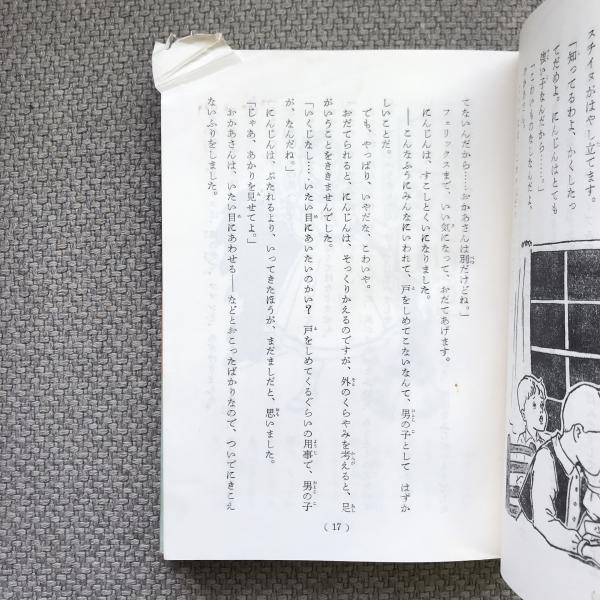 スチイヌがはやし立てます。
「知ってるわよ、かくしたっ
てだめよ。にんじんはとても
強い子なんだから……」
「こわいものなしなんだよ、
てないんだから……おかあさんは別だけどね。」
フェリックスまで、いい気になって、おだてあげます。
にんじんは、すこしとくいになりました。
――こんなふうにみんなにいわれて、戸をしめてこないなんて、男の子として　はずか
しいことだ。
でも、やっぱり、いやだな、こわいや。
おだてられると、にんじんは、そっくりかえるのですが、外のくらやみを考えると、足
がいうことをききませんでした。
「いくじなし……いたい目にあいたいのかい？　戸をしめてくるぐらいの用事で、男の子
が、なんだね。」
にんじんは、ぶたれるより、いってきたほうが、まだましだと、思いました。
「じゃあ、あかりを見せてよ。」
おかあさんは、いたい目にあわせる――などとおこったばかりなので、ついでにきこえ
ないふりをしました。
(17)